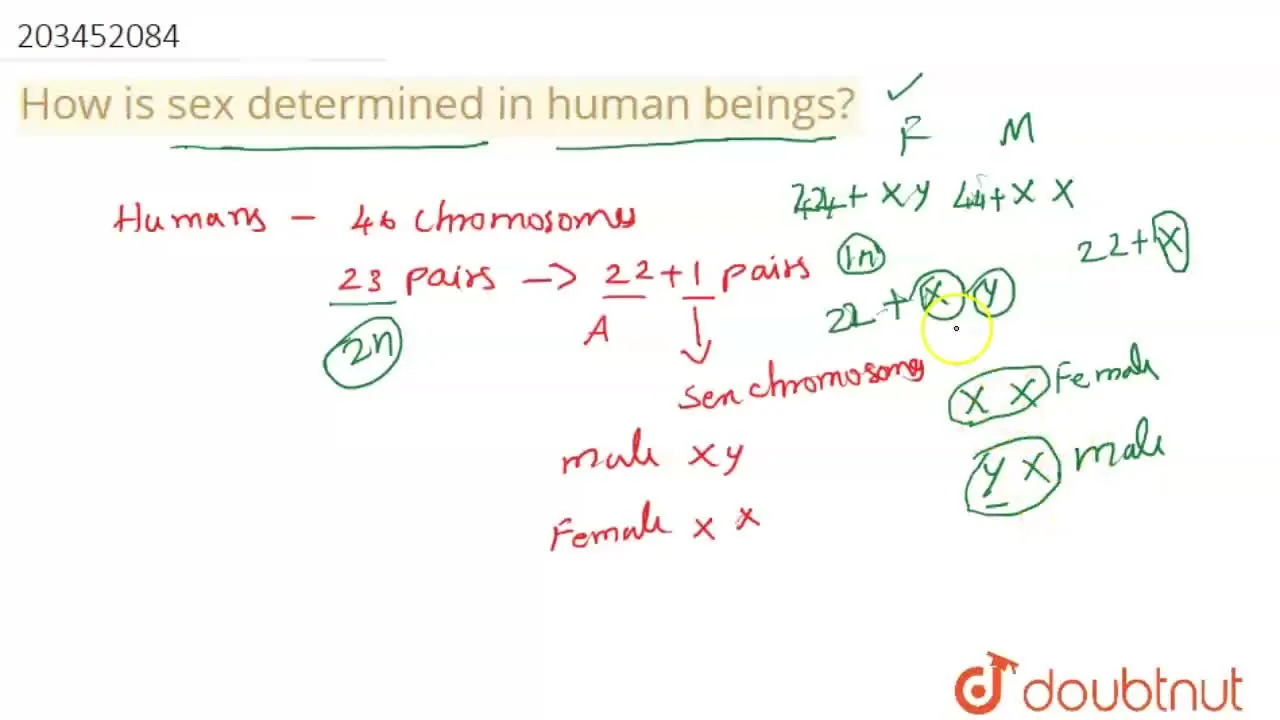 203452084
How is sex determined in human beings?
F M
Humans - 46 chromosomes
44+ XY 44+X X
23 pairs -> 22+1 pairs
1n
22+X
22 + X Y
2n
A
Sex chromosomes
X X Female
male XY
Y X male
Female X X
doubtnut